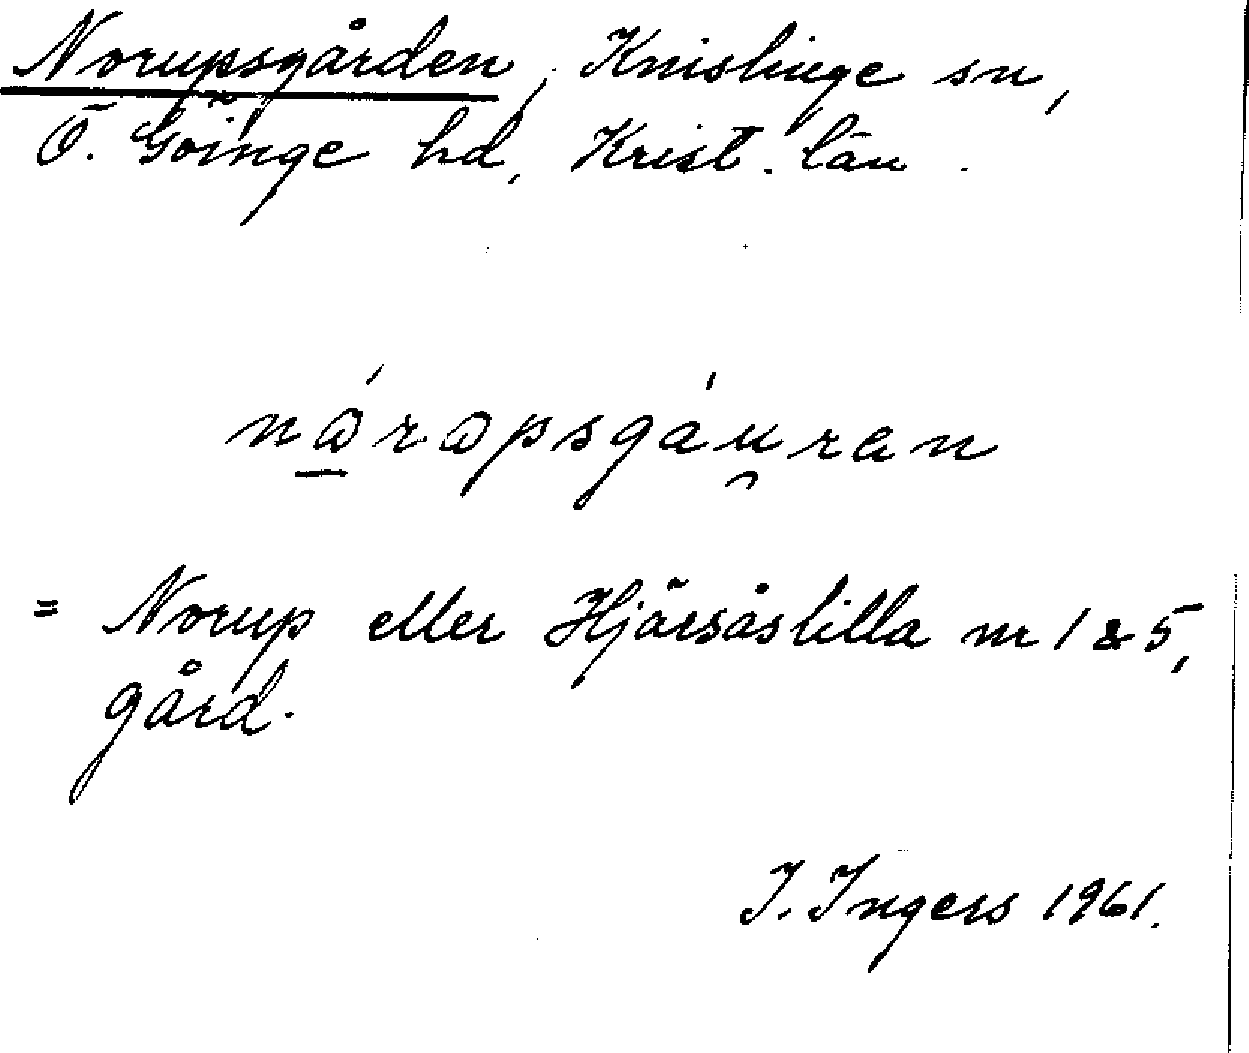 Norupsgården, Knislinge sn,
Ö. Göinge hd, Krist. län.
nɷ̱́rɷpsgáu̯ran
= Norup eller Hjärsåslilla nr 1 & 5,
gård.
I. Ingers 1961.